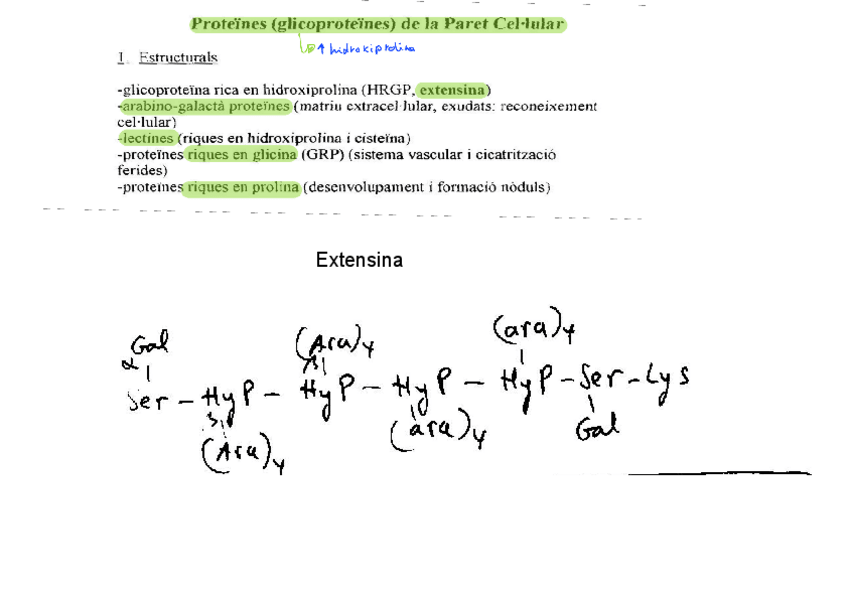 Proteïnes (glicoproteïnes) de la Paret Cel·lular
↑ hidroxiprolina
1. Estructurals
-glicoproteïna rica en hidroxiprolina (HRGP, extensina)
-arabino-galactà proteïnes (matriu extracel·lular, exudats: reconeixement
cel·lular)
-lectines (riques en hidroxiprolina i cisteïna)
-proteïnes riques en glicina (GRP) (sistema vascular i cicatrització
ferides)
-proteïnes riques en prolina (desenvolupament i formació nòduls)
Extensina
(ara)4
Gal (Ara)4
α β
Ser - HyP - HyP - HyP - HyP - Ser - Lys
β
(Ara)4 (ara)4 Gal